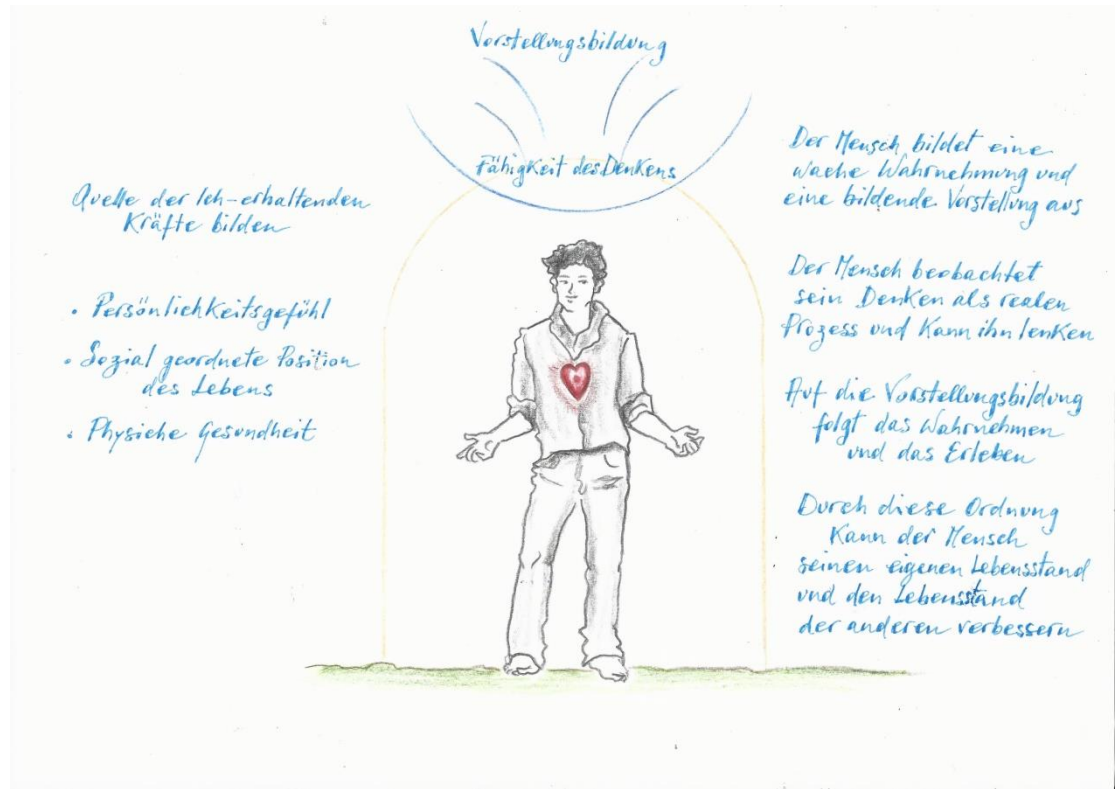 Vorstellungsbildung
Fähigkeit des Denkens
Quelle der Ich-erhaltenden
Kräfte bilden
• Persönlichkeitsgefühl
• Sozial geordnete Position
des Lebens
• Physiche Gesundheit
Der Mensch bildet eine
wache Wahrnehmung und
eine bildende Vorstellung aus
Der Mensch beobachtet
sein Denken als realen
Prozess und kann ihn lenken
Auf die Vorstellungsbildung
folgt das Wahrnehmen
und das Erleben
Durch diese Ordnung
kann der Mensch
seinen eigenen Lebensstand
und den Lebensstand
der anderen verbessern